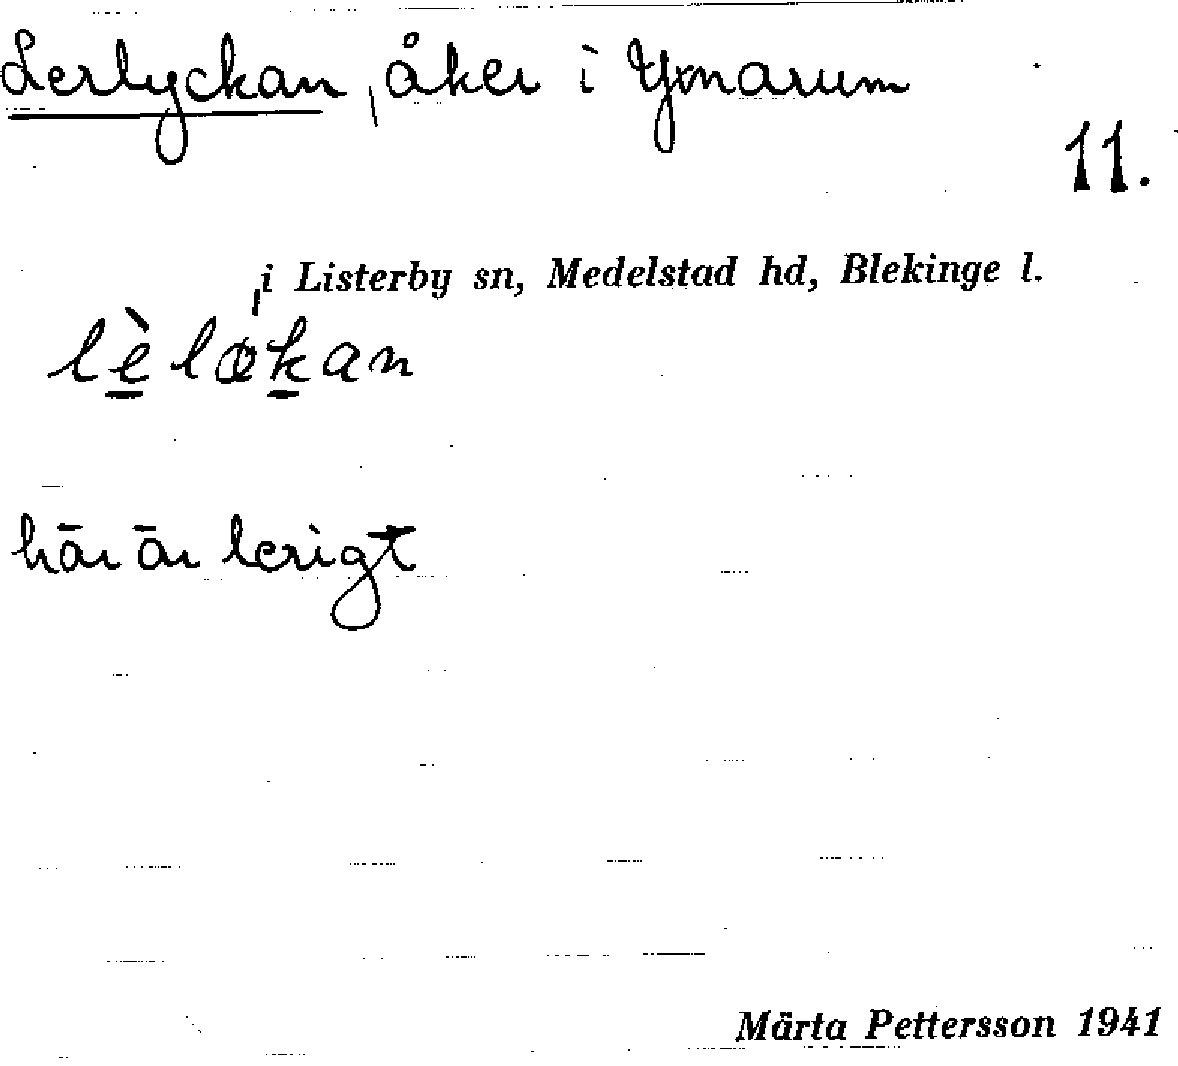 Lerlyckan, åker i Ymarum
11.
i Listerby sn, Medelstad hd, Blekinge l.
lèløkan
här är lerigt
Märta Pettersson 1941